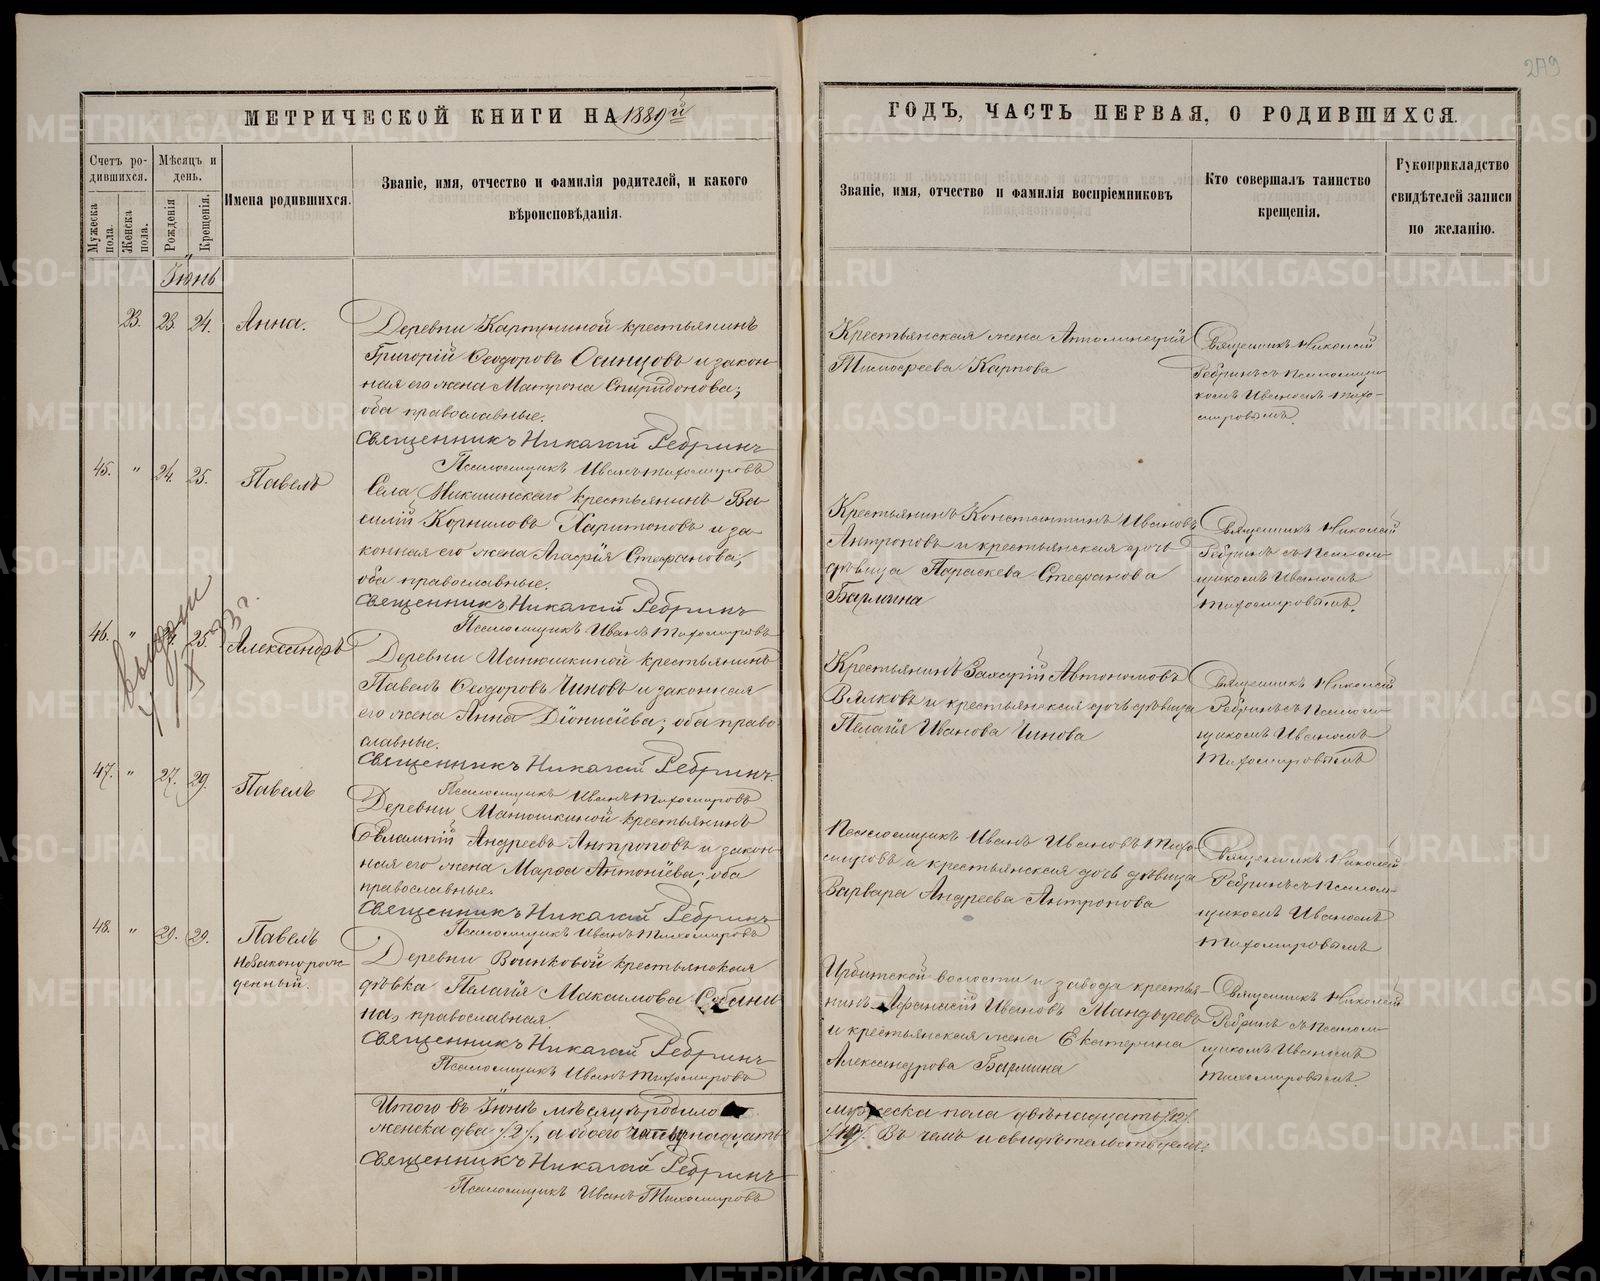 279
МЕТРИЧЕСКОЙ КНИГИ НА 1889й
ГОДЪ, ЧАСТЬ ПЕРВАЯ, О РОДИВШИХСЯ.
Счетъ родившихся.
Мужеска пола.
Женска пола.
Мѣсяцъ и день.
Рожденія
Крещенія.
Имена родившихся.
Званіе, имя, отчество и фамилія родителей, и какого
вѣроисповѣданія.
Званіе, имя, отчество и фамилія воспріемниковъ
Кто совершалъ таинство
крещенія.
Рукоприкладство
свидѣтелей записи
по желанію.
Іюнь
23. 23. 24. Анна.
Деревни крестьянинъ
Григорій Ѳеодоровъ Осинцовъ и закон-
ная его жена Матрона Спиридонова;
оба православные.
Священникъ Николай Ребринъ
Псаломщикъ Иванъ Тихомировъ
Крестьянская жена
Тимоѳеева Карпова
Священникъ Николай
Ребринъ съ Псаломщи-
комъ Иваномъ Тихо-
мировымъ.
45. " 24. 25. Павелъ
Села крестьянинъ Ва-
силій Корниловъ Харитоновъ и за-
конная его жена Агафія Стефанова;
оба православные.
Священникъ Николай Ребринъ
Псаломщикъ Иванъ Тихомировъ
Крестьянинъ Константинъ Ивановъ
Антроповъ и крестьянская дочь
дѣвица Параскева Стефанова
Священникъ Николай
Ребринъ съ Псалом-
щикомъ Иваномъ
Тихомировымъ.
46. " 25. Александръ
Деревни Матюшкиной крестьянинъ
Павелъ Ѳеодоровъ Чиновъ и законная
его жена Анна Діонисіева; оба право-
славные.
Священникъ Николай Ребринъ.
Псаломщикъ Иванъ Тихомировъ
Крестьянинъ Захарій Автономовъ
и крестьянская дочь дѣвица
Пелагія Иванова Чинова
Священникъ Николай
Ребринъ съ Псалом-
щикомъ Иваномъ
Тихомировымъ
47. " 27. 29. Павелъ
Деревни Матюшкиной крестьянинъ
Евлампій Андреевъ Антроповъ и закон-
ная его жена Марѳа Антоніева; оба
православные.
Священникъ Николай Ребринъ
Псаломщикъ Иванъ Тихомировъ
Псаломщикъ Иванъ Ивановъ Тихо-
мировъ и крестьянская дочь дѣвица
Варвара Андреева Антропова
Священникъ Николай
Ребринъ съ Псалом-
щикомъ Иваномъ
Тихомировымъ
48. " 29. 29. Павелъ
Незаконорож-
денный.
Деревни крестьянская
дѣвка Пелагія Максимова
православная.
Священникъ Николай Ребринъ
Псаломщикъ Иванъ Тихомировъ
Ирбитской волости и завода крестья-
нинъ Афанасій Ивановъ
и крестьянская жена Екатерина
Александрова
Священникъ Николай
Ребринъ съ Псалом-
щикомъ Иваномъ
Тихомировымъ.
Итого въ Іюнѣ мѣсяцѣ родило
мужеска пола двѣнадцать /12/.
женска два /2/, а обоего четырнадцать
/14/. Въ чемъ и свидѣтельствуемъ:
Священникъ Николай Ребринъ
Псаломщикъ Иванъ Тихомировъ
METRIKI.GASO-URAL.RU